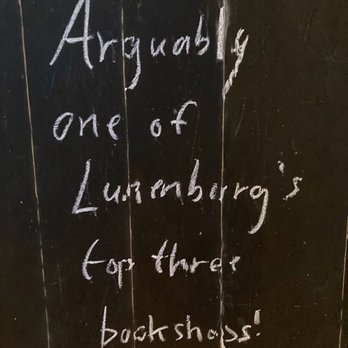 Arguably
one of
Lunenburg's
top three
bookshops!